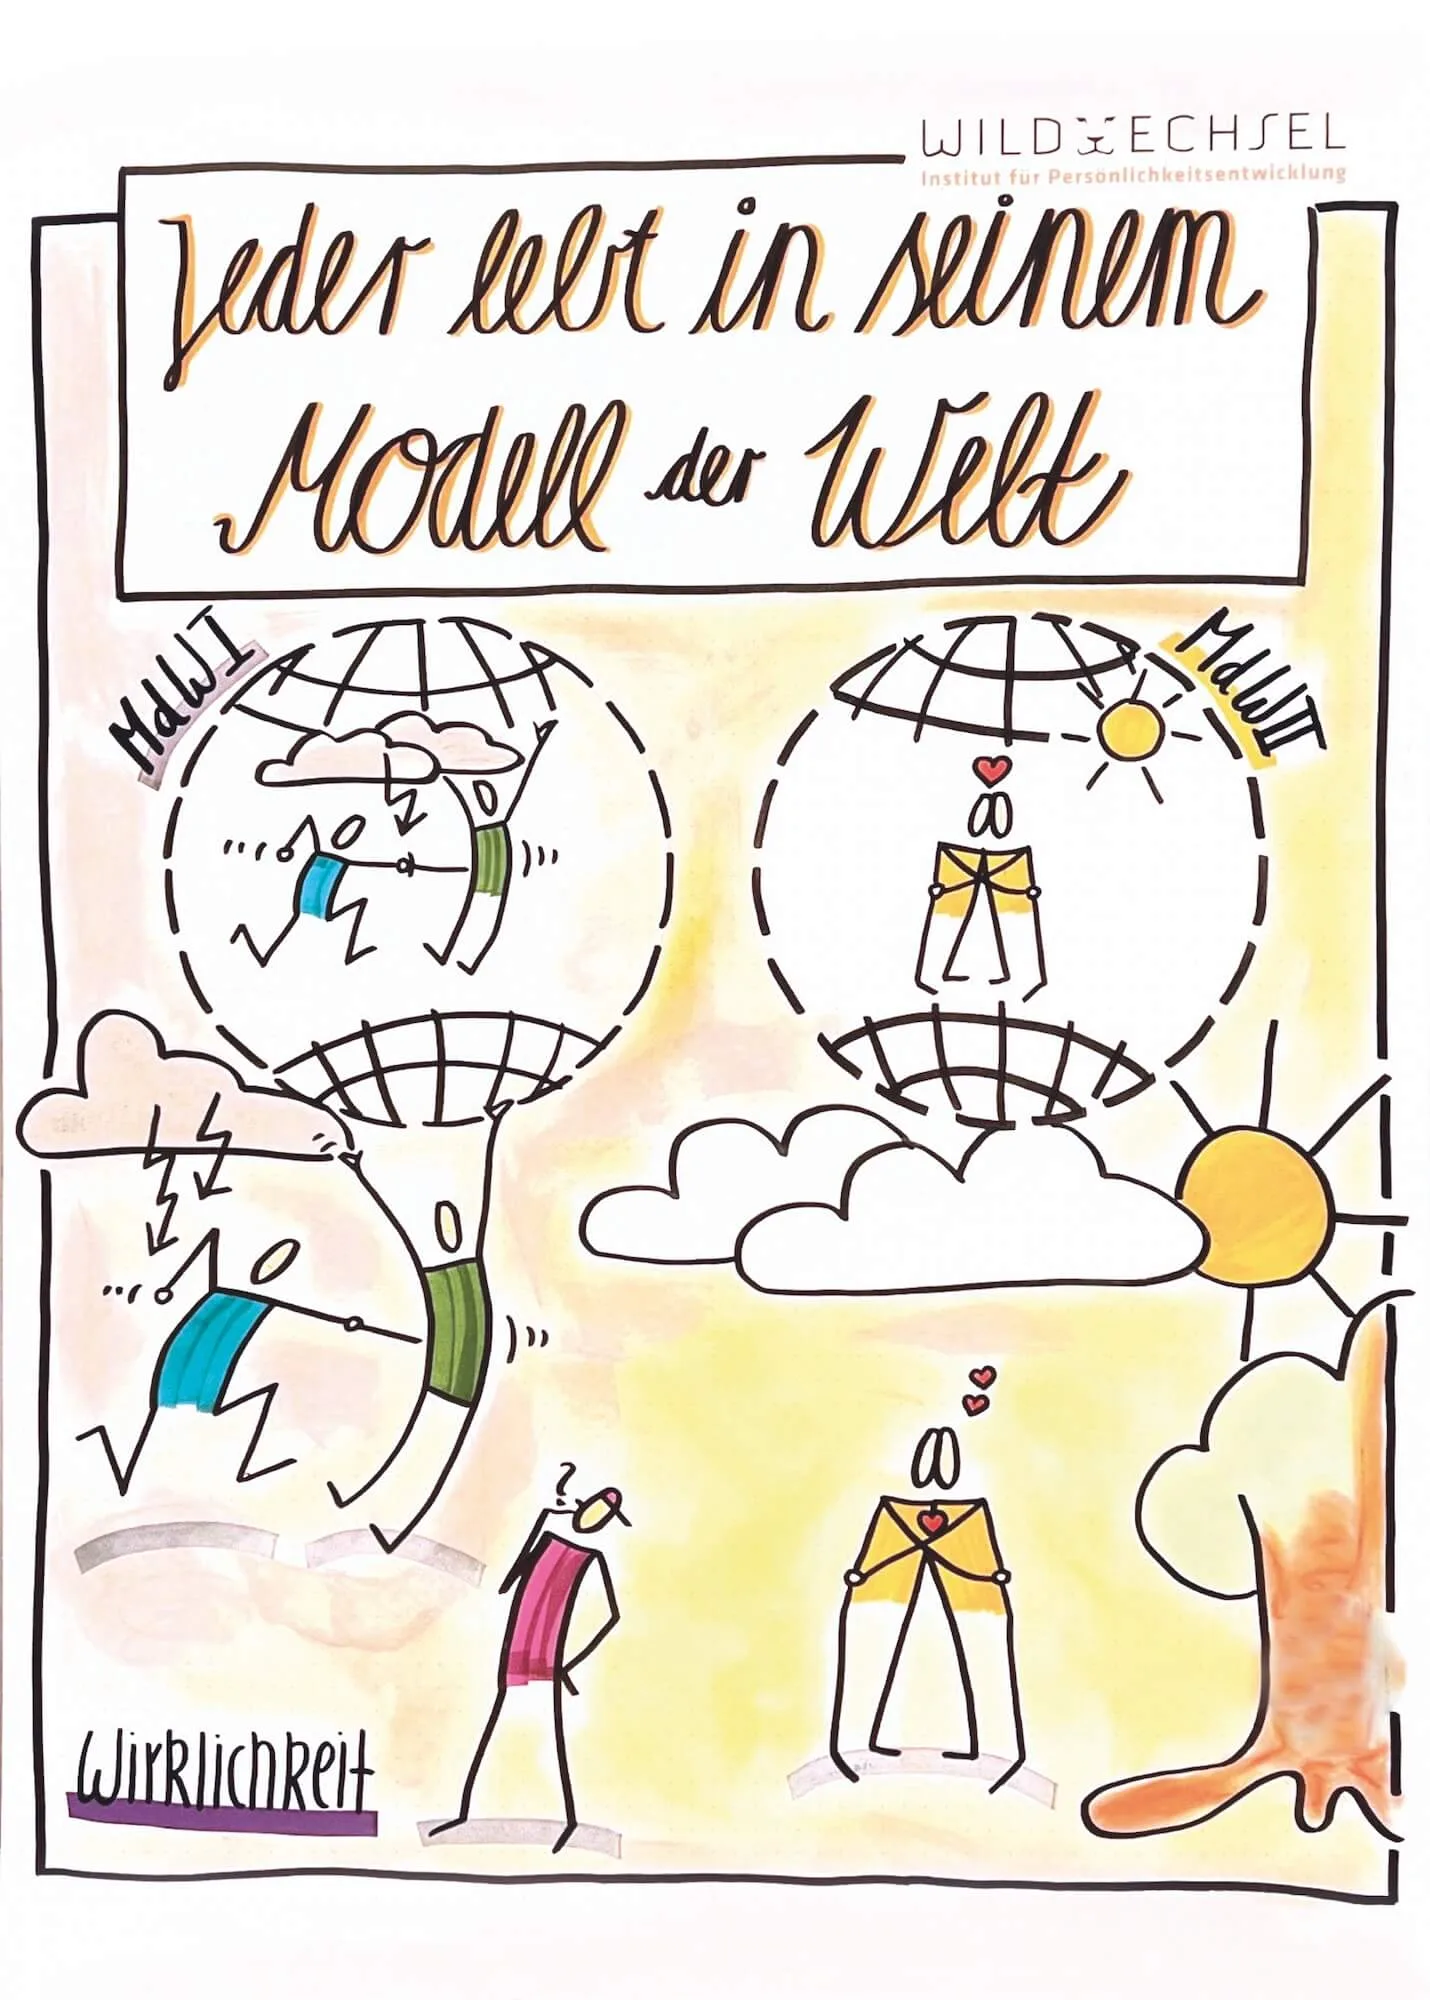 WILDWECHSEL
Institut für Persönlichkeitsentwicklung
Jeder lebt in seinem
Modell der Welt
MdW I
MdW II
?
Wirklichkeit